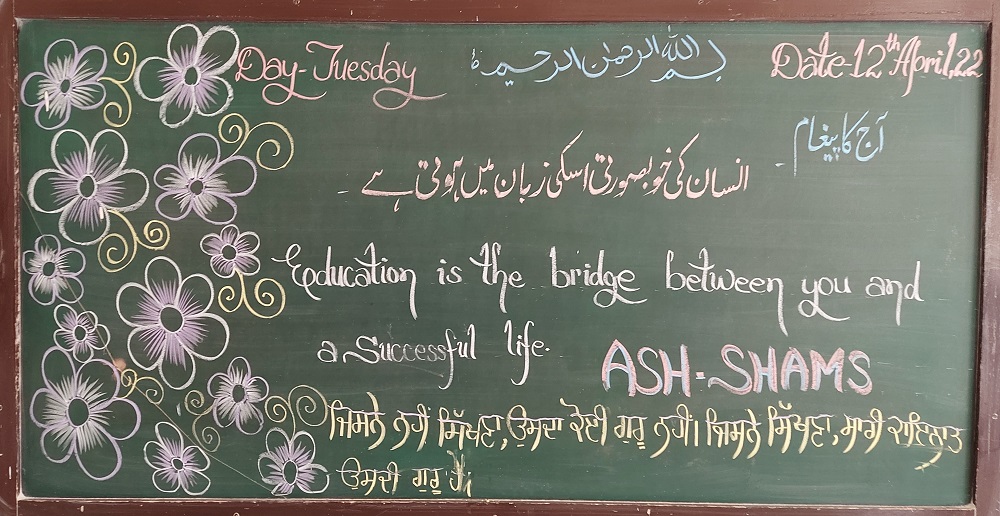 Day-Tuesday
بسم اللہ الرحمٰن الرحیم
Date-12th April,22
آج کا پیغام
انسان کی خوبصورتی اسکی زبان میں ہوتی ہے ۔
Education is the bridge between you and
a Successful life.
ASH-SHAMS
ਜਿਸਨੇ ਨਹੀਂ ਸਿੱਖਣਾ, ਉਸਦਾ ਕੋਈ ਗੁਰੂ ਨਹੀਂ। ਜਿਸਨੇ ਸਿੱਖਣਾ, ਸਾਰੀ ਕਾਇਨਾਤ
ਉਸਦੀ ਗੁਰੂ ਹੈ।